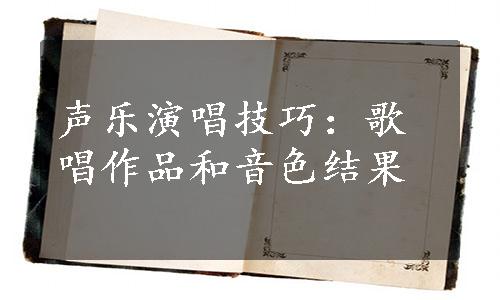 声乐演唱技巧：歌
唱作品和音色结果